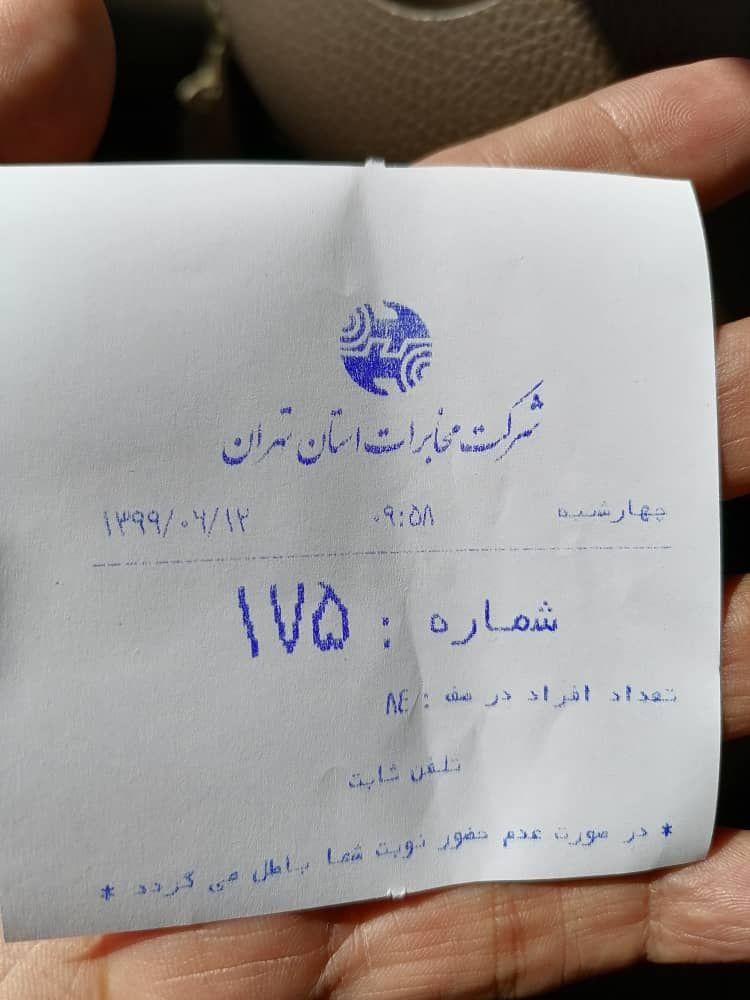 شرکت مخابرات استان تهران
چهارشنبه ۰۹:۵۸ ۱۳۹۹/۰۶/۱۲
شماره : ۱۷۵
تعداد افراد در صف : ۸۴
تلفن ثابت
* در صورت عدم حضور نوبت شما باطل می گردد *